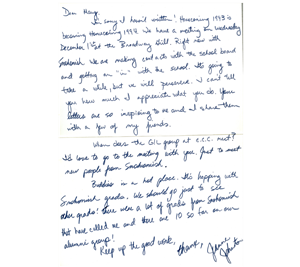 Dear Mary,
I'm sorry I haven't written! Homecoming 1993 is
becoming Homecoming 1994. We have a meeting on Wednesday
December 1st at the Broadway Hill. Right now with
Snohomish we are making contacts with the school board
and getting an "in" with the school. It's going to
take a while, but we will persevere. I can't tell
you how much I appreciate what you do. Your
letters are so inspiring to me and I share them
with a few of my friends.
When does the G/L group at E.C.C. meet?
I'd love to go to the meeting with you. Just to meet
new people from Snohomish.
Buddies is a hot place. It's hopping with
Snohomish grads. We should go just to see
other grads! There were a lot of grads from Snohomish
that have called me and there are 10 so far on our
alumni group!
Keep up the good work,
Thanks,